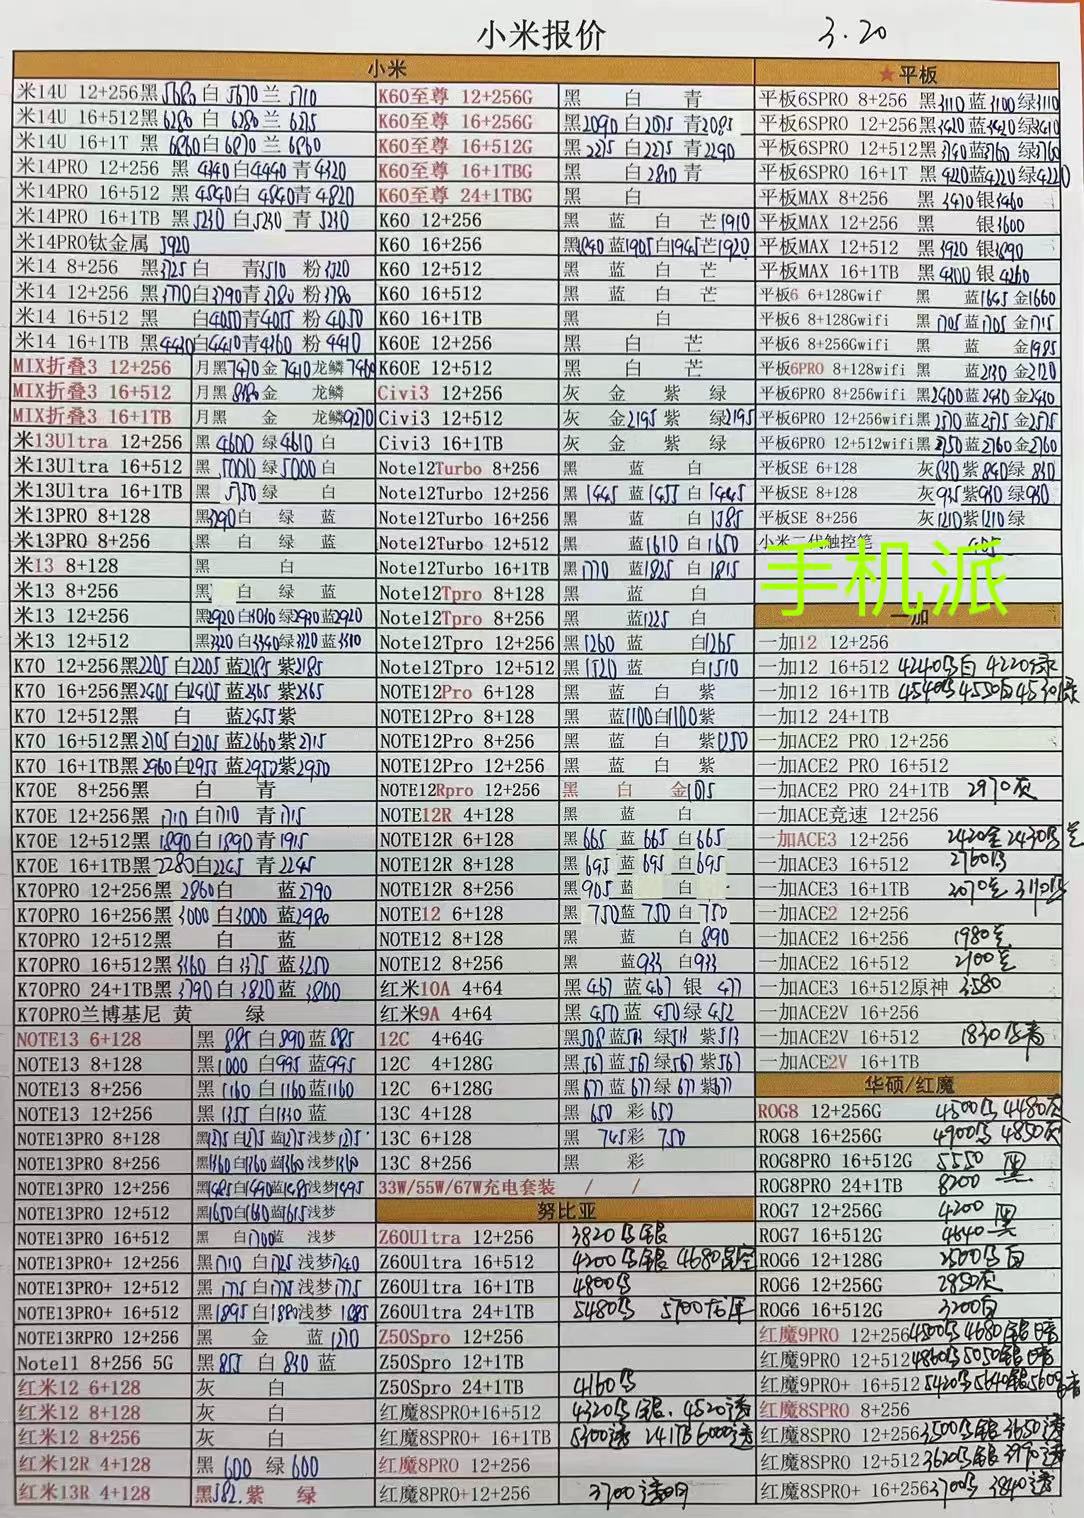 小米报价 3.20
小米
米14U 12+256黑5680白5670兰5710
米14U 16+512黑6280白6280兰6275
米14U 16+1T黑6860白6870兰6860
米14PRO 12+256 黑4340白4440青4320
米14PRO 16+512 黑4840白4840青4820
米14PRO 16+1TB 黑5230白5230青5230
米14PRO钛金属 5920
米14 8+256 黑3725白 青3510粉3520
米14 12+256 黑3770白3790青3780粉3780
米14 16+512 黑 白4050青4055粉4050
米14 16+1TB 黑4430白4410青4360粉4410
MIX折叠3 12+256 月黑7470金7410龙鳞7460
MIX折叠3 16+512 月黑8180金 龙鳞
MIX折叠3 16+1TB 月黑 金 龙鳞9270
米13Ultra 12+256 黑4600绿4610白
米13Ultra 16+512 黑5000绿5000白
米13Ultra 16+1TB 黑5750绿 白
米13PRO 8+128 黑3290白 绿 蓝
米13PRO 8+256 黑 白 绿 蓝
米13 8+128 黑 白
米13 8+256 黑 白 绿 蓝
米13 12+256 黑2920白3030绿2920蓝2920
米13 12+512 黑3320白3340绿3320蓝3310
K70 12+256黑2205白2205蓝2185紫2185
K70 16+256黑2405白2405蓝2365紫2365
K70 12+512黑 白 蓝2455紫
K70 16+512黑2705白2705蓝2660紫2715
K70 16+1TB黑2960白2955蓝2950紫2950
K70E 8+256黑 白 青
K70E 12+256黑1710白1710青1715
K70E 12+512黑1890白1890青1915
K70E 16+1TB黑2280白2245青2245
K70PRO 12+256黑2860白 蓝2790
K70PRO 16+256黑3000白3000蓝2980
K70PRO 12+512黑 白 蓝
K70PRO 16+512黑3360白3375蓝3250
K70PRO 24+1TB黑3790白3820蓝3800
K70PRO兰博基尼 黄 绿
NOTE13 6+128 黑885白890蓝885
NOTE13 8+128 黑1000白995蓝995
NOTE13 8+256 黑1160白1160蓝1160
NOTE13 12+256 黑1355白1330蓝
NOTE13PRO 8+128 黑1275白1275蓝1275浅梦1275
NOTE13PRO 8+256 黑1360白1360蓝1360浅梦1360
NOTE13PRO 12+256 黑1485白1490蓝1485浅梦1495
NOTE13PRO 12+512 黑1650白1660蓝1615浅梦
NOTE13PRO 16+512 黑 白1700蓝 浅梦
NOTE13PRO+ 12+256 黑1710白1725浅梦1740
NOTE13PRO+ 12+512 黑1775白1775浅梦1775
NOTE13PRO+ 16+512 黑1895白1880浅梦1885
NOTE13RPRO 12+256 黑 金 蓝1270
Note11 8+256 5G 黑855白830蓝
红米12 6+128 灰 白
红米12 8+128 灰 白
红米12 8+256 灰 白
红米12R 4+128 黑600绿600
红米13R 4+128 黑582.紫 绿
K60至尊 12+256G 黑 白 青
K60至尊 16+256G 黑2090白2075青2085
K60至尊 16+512G 黑2275白2275青2290
K60至尊 16+1TBG 黑 白2810青
K60至尊 24+1TBG 黑 白
K60 12+256 黑 蓝 白 芒1910
K60 16+256 黑1940蓝1905白1945芒1920
K60 12+512 黑 蓝 白 芒
K60 16+512 黑 蓝 白 芒
K60 16+1TB 黑 白
K60E 12+256 黑 白 芒
K60E 12+512 黑 白 芒
Civi3 12+256 灰 金 紫 绿
Civi3 12+512 灰 金2195紫 绿2195
Civi3 16+1TB 灰 金 紫 绿
Note12Turbo 8+256 黑 蓝 白
Note12Turbo 12+256 黑1445蓝1455白1445
Note12Turbo 16+256 黑 蓝 白1585
Note12Turbo 12+512 黑 蓝1610白1650
Note12Turbo 16+1TB 黑1770蓝1825白1815
Note12Tpro 8+128 黑 蓝 白
Note12Tpro 8+256 黑 蓝1225白
Note12Tpro 12+256 黑1260蓝 白1265
Note12Tpro 12+512 黑1520蓝 白1510
NOTE12Pro 6+128 黑 蓝 白 紫
NOTE12Pro 8+128 黑 蓝1100白1100紫
NOTE12Pro 8+256 黑 蓝 白 紫1250
NOTE12Pro 12+256 黑 蓝 白 紫
NOTE12Rpro 12+256 黑 白 金1075
NOTE12R 4+128 黑 蓝 白
NOTE12R 6+128 黑665蓝665白665
NOTE12R 8+128 黑695蓝695白695
NOTE12R 8+256 黑905蓝 白
NOTE12 6+128 黑750蓝750白750
NOTE12 8+128 黑 蓝 白890
NOTE12 8+256 黑 蓝933白933
红米10A 4+64 黑467蓝467银477
红米9A 4+64 黑450蓝450绿452
12C 4+64G 黑508蓝513绿513紫513
12C 4+128G 黑567蓝567绿567紫567
12C 6+128G 黑677蓝677绿677紫677
13C 4+128 黑650彩650
13C 6+128 黑745彩750
13C 8+256 黑 彩
33W/55W/67W充电套装 / /
努比亚
Z60Ultra 12+256 3820乌银
Z60Ultra 16+512 4200乌银 4680星空
Z60Ultra 16+1TB 4800乌
Z60Ultra 24+1TB 5480乌 5700龙年
Z50Spro 12+256
Z50Spro 12+1TB
Z50Spro 24+1TB 4160乌
红魔8SPRO+16+512 4320乌银.4520透
红魔8SPRO+ 16+1TB 5300透 24 1TB 6000透
红魔8PRO 12+256
红魔8PRO+12+256 3700透明
★平板
平板6SPRO 8+256 黑3110蓝3100绿3110
平板6SPRO 12+256黑3420蓝3420绿3410
平板6SPRO 12+512黑3740蓝3760绿3760
平板6SPRO 16+1T 黑4220蓝4220绿4220
平板MAX 8+256 黑3470银3460
平板MAX 12+256 黑 银3600
平板MAX 12+512 黑3920银3890
平板MAX 16+1TB 黑4200银4260
平板6 6+128Gwif 黑 蓝1645金1660
平板6 8+128Gwifi 黑1705蓝1705金1715
平板6 8+256Gwifi 黑 蓝 金1985
平板6PRO 8+128wifi 黑 蓝2130金2120
平板6PRO 8+256wifi 黑2400蓝2430金2430
平板6PRO 12+256wifi黑2570蓝2575金2575
平板6PRO 12+512wifi黑2750蓝2760金2760
平板SE 6+128 灰830紫840绿830
平板SE 8+128 灰935紫930绿930
平板SE 8+256 灰1210紫1210绿
小米二代触控笔 405
手机派
一加
一加12 12+256
一加12 16+512 4240乌白 4220绿
一加12 16+1TB 4540乌4550白4530绿
一加12 24+1TB
一加ACE2 PRO 12+256
一加ACE2 PRO 16+512
一加ACE2 PRO 24+1TB 2970灰
一加ACE竞速 12+256
一加ACE3 12+256 2420金2430乌兰
一加ACE3 16+512 2760乌
一加ACE3 16+1TB 3070兰 3110乌
一加ACE2 12+256
一加ACE2 16+256 1980兰
一加ACE2 16+512 2100兰
一加ACE3 16+512原神 3580
一加ACE2V 16+256
一加ACE2V 16+512 1830乌青
一加ACE2V 16+1TB
华硕/红魔
ROG8 12+256G 4500乌 4480灰
ROG8 16+256G 4900乌 4850灰
ROG8PRO 16+512G 5550 黑
ROG8PRO 24+1TB 8200
ROG7 12+256G 4200 黑
ROG7 16+512G 4640
ROG6 12+128G 2500乌白
ROG6 12+256G 2850灰
ROG6 16+512G 3200白
红魔9PRO 12+256 4500乌4680银暗
红魔9PRO 12+512 4860乌5050银暗
红魔9PRO+ 16+512 5420乌5640银5605暗
红魔8SPRO 8+256
红魔8SPRO 12+256 3500乌银3650透
红魔8SPRO 12+512 3620乌银3990透
红魔8SPRO+ 16+256 3700乌 3840透